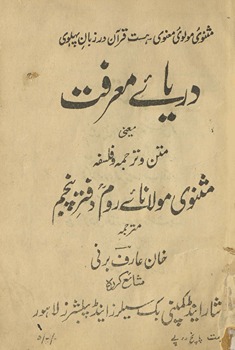 مثنوی مولوی معنوی ہست قرآن در زبان پہلوی
دریائے معرفت
یعنی
متن و ترجمہ و فلسفہ
مثنوی مولانائے روم دفتر پنجم
مترجمہ
خان عارف برنی
شائع کردہ
نثار اینڈ کمپنی بک سیلرز اینڈ پبلشرز لاہور